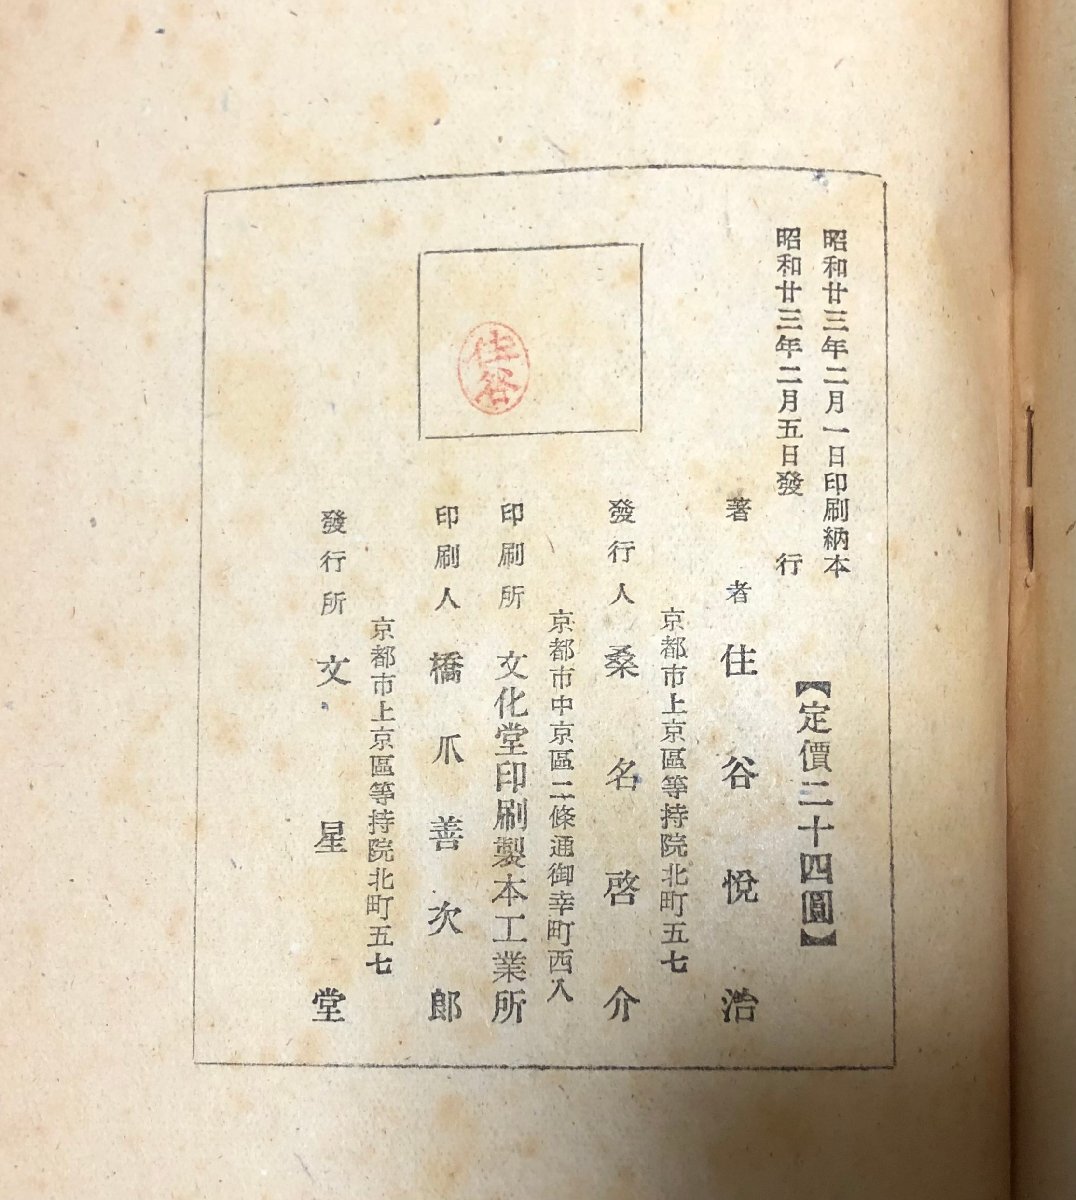 昭和廿三年二月一日印刷納本
昭和廿三年二月五日發行
【定價二十四圓】
著者 住谷悅治
京都市上京區等持院北町五七
發行人 桑名啓介
京都市中京區二條通御幸町西入
印刷所 文化堂印刷製本工業所
印刷人 橋爪善次郎
京都市上京區等持院北町五七
發行所 文星堂
住谷